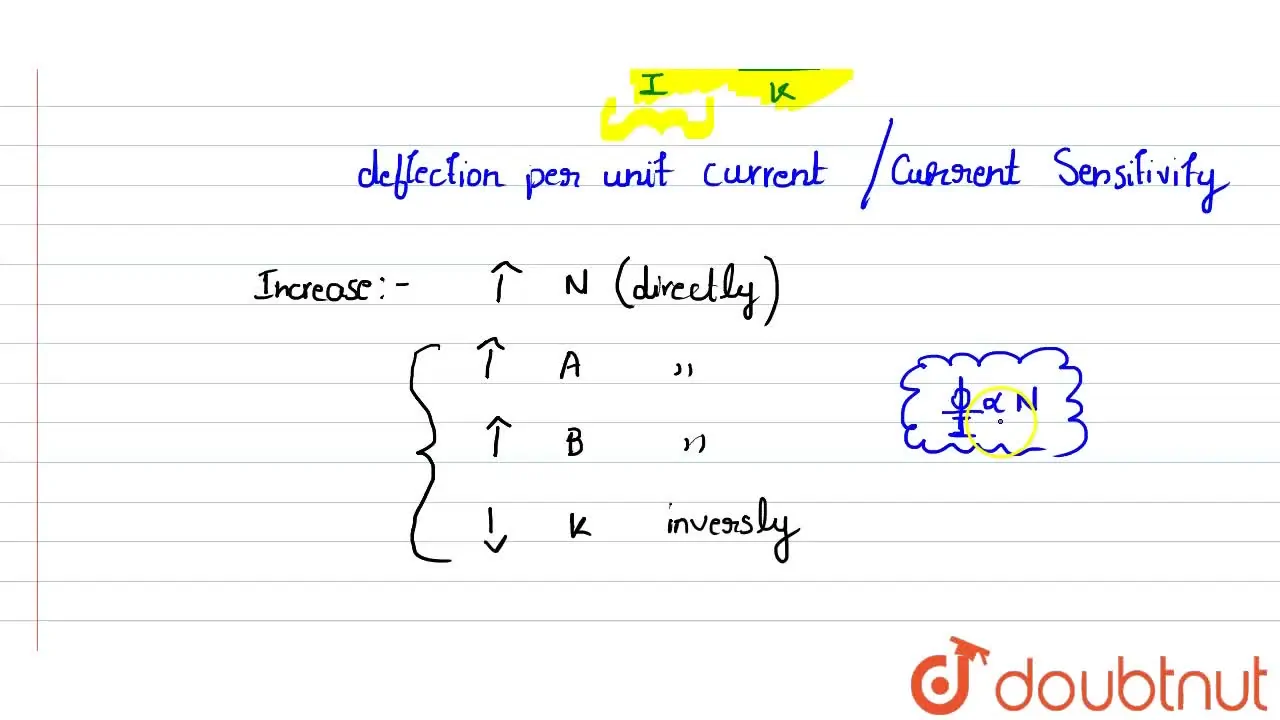 I K
deflection per unit current / Current Sensitivity
Increase:- ↑ N (directly)
↑ A ,,
↑ B ,,
ϕ/I ∝ N
↓ K inversly
doubtnut